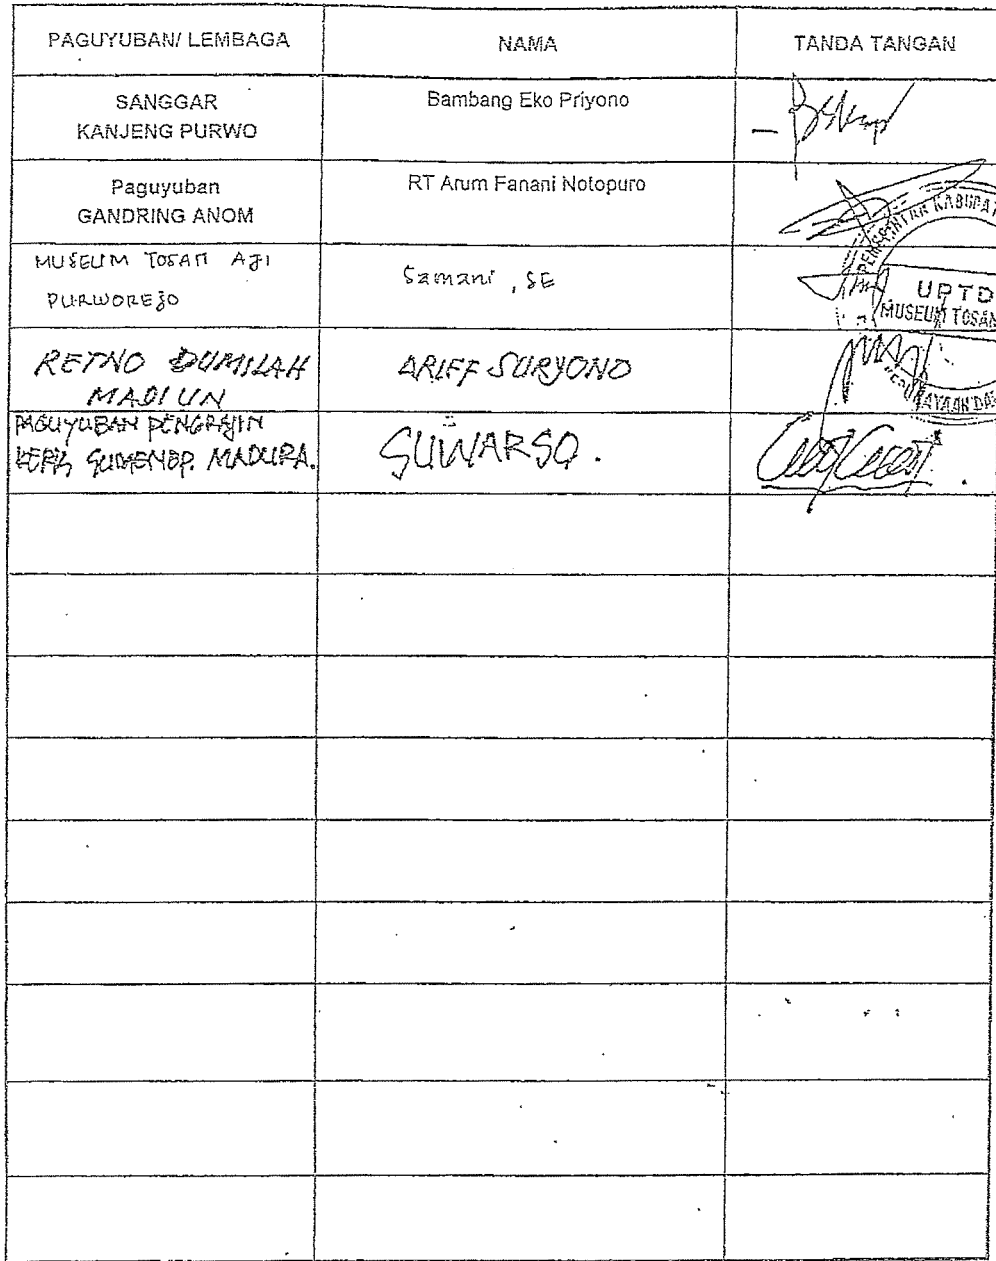 PAGUYUBAN/ LEMBAGA
NAMA
TANDA TANGAN
SANGGAR
KANJENG PURWO
Bambang Eko Priyono
Paguyuban
GANDRING ANOM
RT Arum Fanani Notopuro
MUSEUM TOSAN AJI
PURWOREJO
Samani, SE
UPTD
MUSEUM TOSAN
RETNO DUMILAH
MADIUN
ARIEF SURYONO
PAGUYUBAN PENGRAJIN
KERIS SUMENEP. MADURA.
SUWARSO.